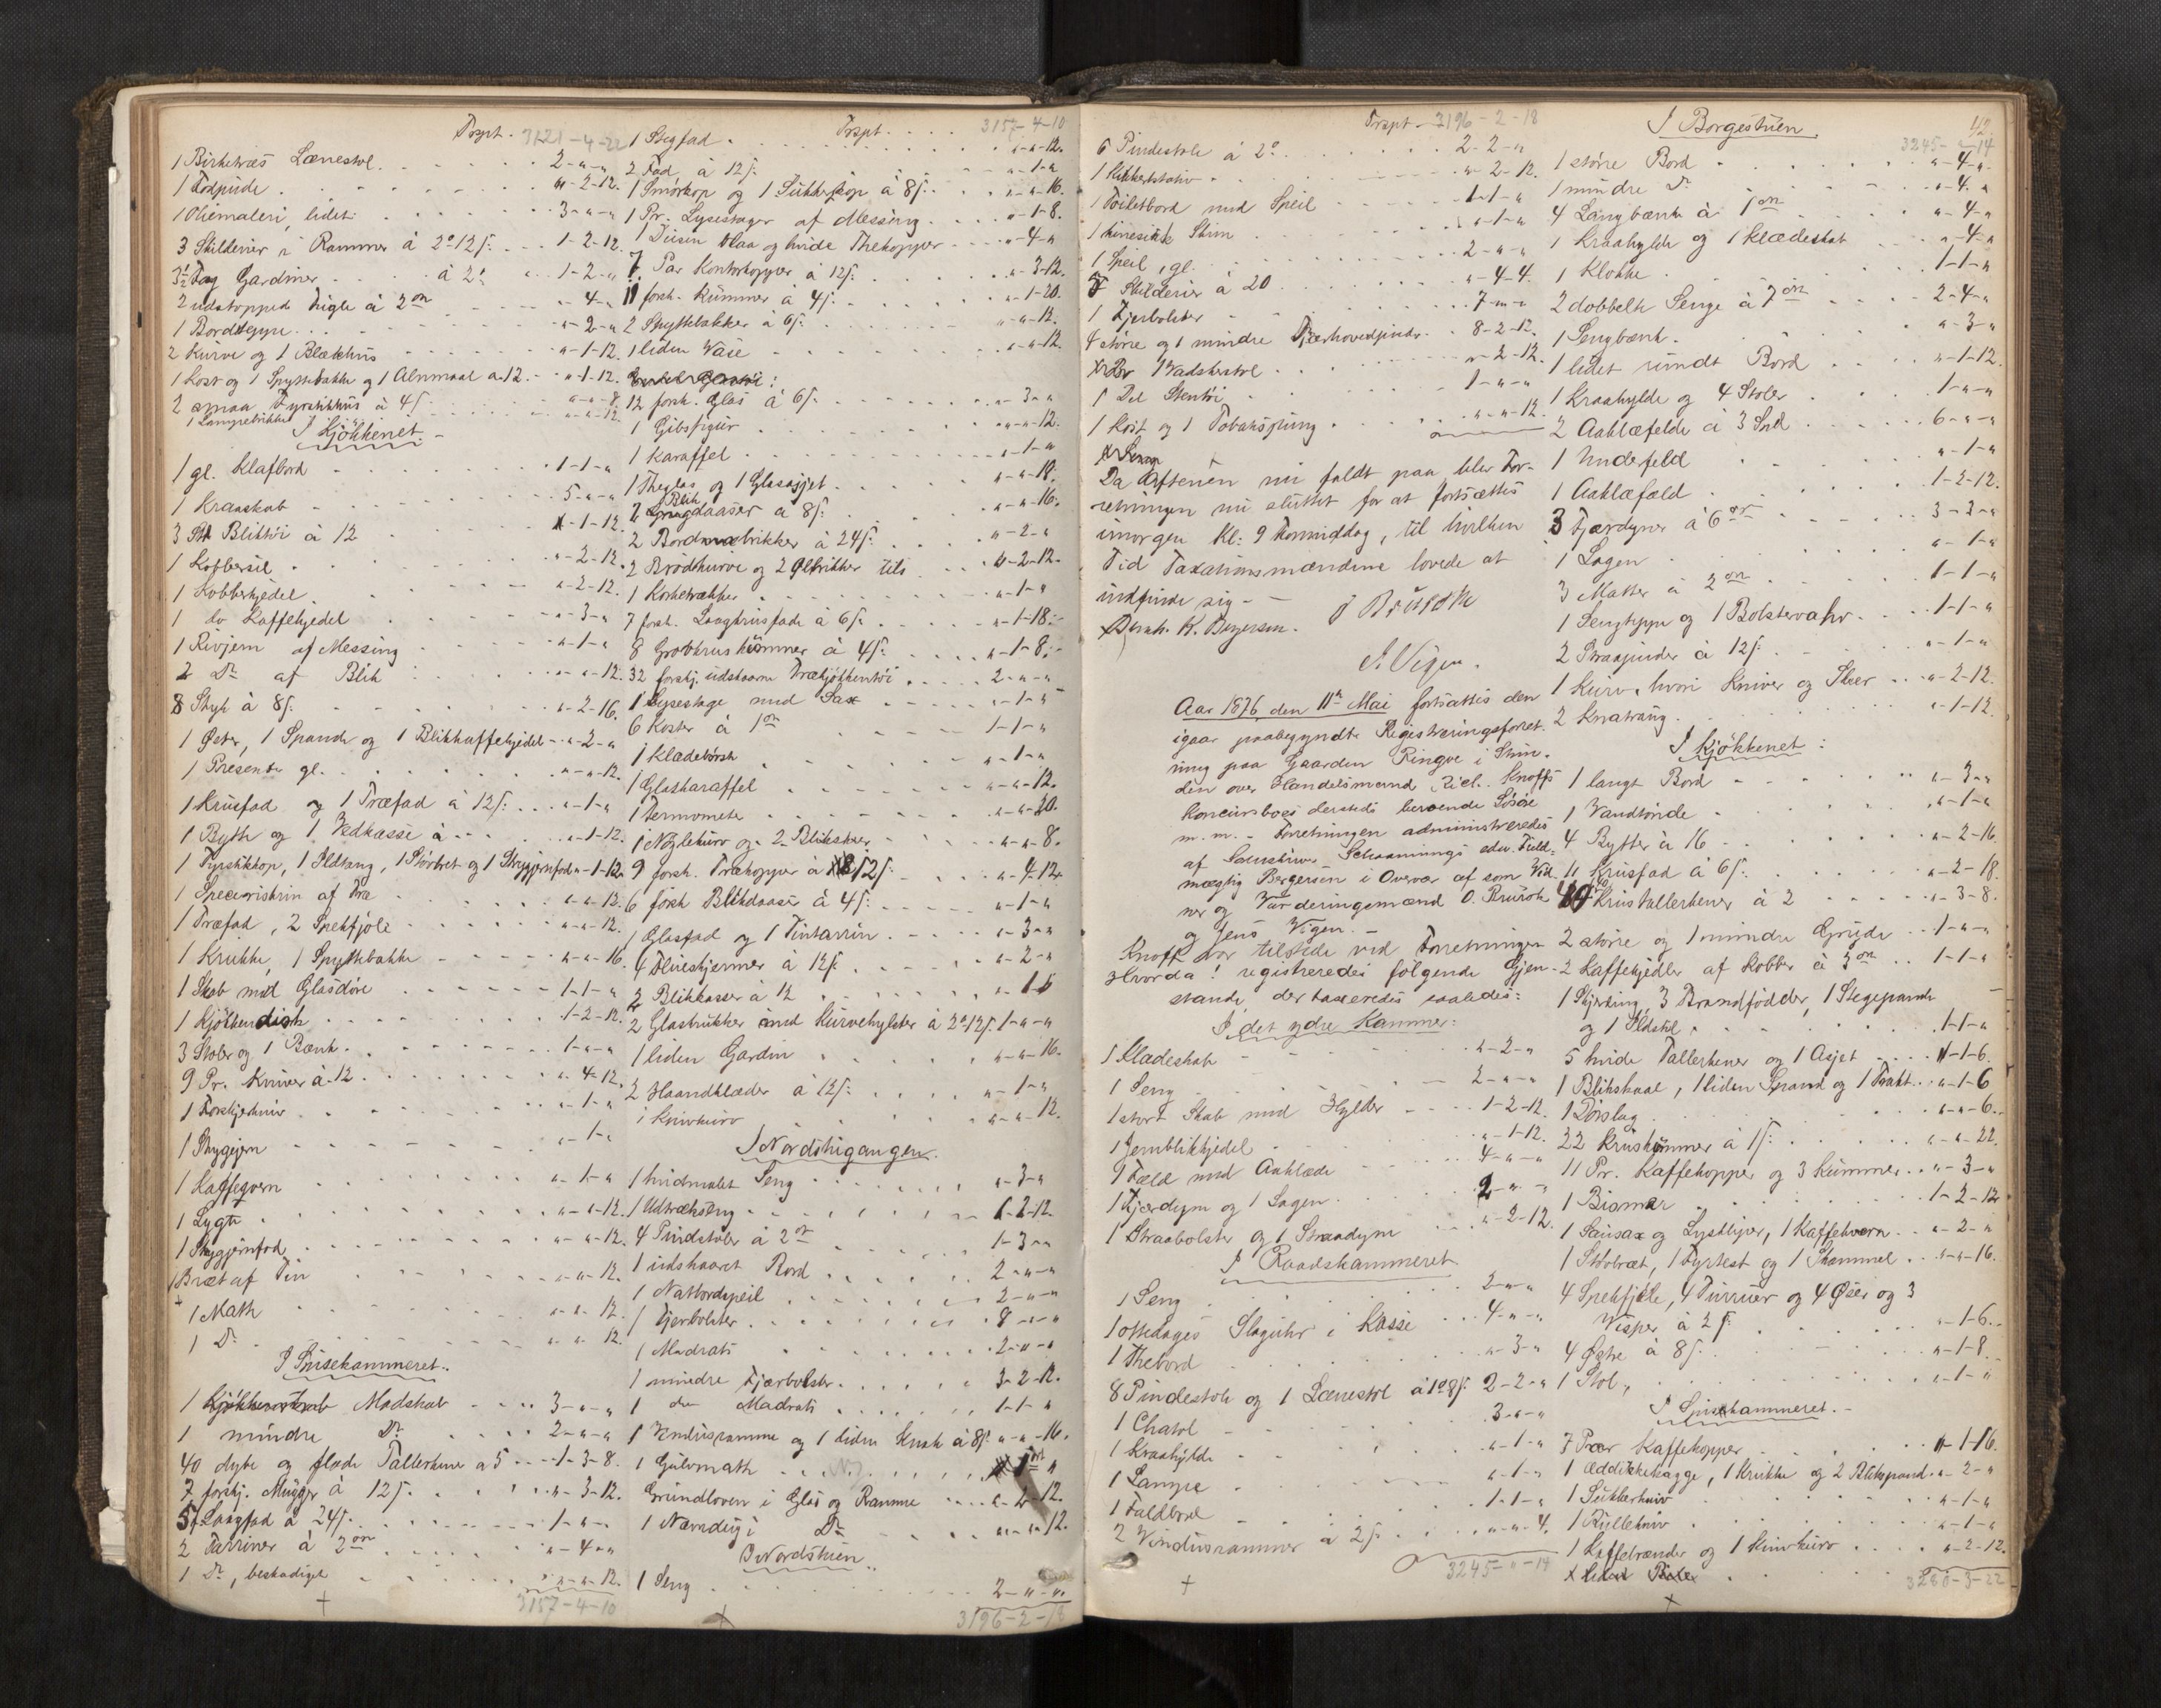 Trspt. 3121-4-22
1 Birketræs Lænestol . . . 2-"-"
1 Fodpude . . . "-2-12.
1 Oliemaleri, lidet . . . 3-"-"
3 Skilderier i Rammer à 2º12 s. . . 1-2-12.
3½ Fag Gardiner . . . à 2º . . 1-2-"
2 udstoppede Fugle à 2 ort . . . "-4-"
1 Bordteppe . . . "-2-"
2 Kurve og 1 Blækhus . . . "-1-12.
1 Kost og 1 Spyttebakke og 1 Alnmaal a 12. . "-1-12.
2 smaa Fyrstikhus à 4 s. . . "-"-8.
1 Lampebrikke . . . "-"-12.
I Kjøkkenet.
1 gl. Klafbord . . . 1-1-"
1 Kraaskab . . . 5-"-"
3 St. Bliktøi à 12 . . . "-1-12.
1 Kobbersil . . . "-2-12.
1 Kobberkjedel . . . "-2-12.
1 do Kaffekjedel . . . "-3-"
1 Rivjern af Messing . . . "-1-"
2 Do af Blik . . . "-"-12.
8 Stryk à 8 s. . . . "-2-16.
1 Øster, 1 Spand og 1 Blikkaffekjedel . . "-2-"
1 Presente gl. . . . "-"-12.
1 Krusfad og 1 Træfad à 12 s. . . . "-1-"
1 Bytte og 1 Vedkasse à . . . "-1-12.
1 Fyrstikkop, 1 Ildtang, 1 Støvbret og 1 Strygjernfod "-1-12.
1 Speceriskrin af Træ . . . "-"-12.
1 Træfad, 2 Spekfjøle . . . "-"-12.
1 Krukke, 1 Spyttebakke . . . "-"-16.
1 Skab med Glasdøre . . . 1-1-"
1 Kjøkkendisk . . . 1-2-12.
3 Stoler og 1 Bænk . . . 1-"-"
9 Pr. Kniver à 12 . . . "-4-12.
1 Forskjærkniv . . . "-1-"
1 Strygejern . . . "-1-"
1 Kaffeqvern . . . "-1-"
1 Lygte . . . "-"-12.
1 Strygjernfod . . . "-"-12.
1 Bræt af Tin . . . "-"-12.
1 Matte . . . "-"-12.
1 Do . . . "-"-12.
I Spisekammeret.
1 Madskab . . . 3-"-"
1 mindre Do . . . 2-"-"
40 dybe og flade Tallerkener a 5 . . . 1-3-8.
7 forskj. Mugger à 12 s. . . . "-3-12.
5 Laagfad à 24 s. . . . 1-"-"
2 Tarriner à 2 ort . . . "-4-"
1 Do, beskadiget . . . "-"-12.
3157-4-10
Trspt. . . . 3157-4-10
1 Stegfad . . . "-"-12.
2 Fad à 12 s. . . . "-1-"
1 Smørkop og 1 Sukkerkop à 8 s. . . "-"-16.
1 Pr. Lysestager af Messing . . . "-1-8.
1 Dusin blaa og hvide Thekopper . . . "-4-"
7 Par Kontorkopper à 12 s. . . "-3-12.
11 forsk. Kummer à 4 s. . . . "-1-20.
2 Spyttebakker à 6 s. . . . "-"-12.
1 liden Vase . . . "-"-12.
12 forsk. Glas à 6 s. . . . "-3-"
1 Gibsfigur . . . "-"-12.
1 Karaffel . . . "-1-"
1 Theglas og 1 Glasasjet . . . "-"-18.
2 Blikdaaser a 8 s. . . . "-"-16.
2 Bordbrikker à 24 s. . . . "-2-"
2 Brødkurve og 2 Ølbrikker tils. . . "-2-12.
1 Korketrækker . . . "-1-"
7 forsk. Laagkrusfade à 6 s. . . . "-1-18.
8 Grovkruskummer à 4 s. . . . "-1-8.
32 forskj. udskaarne Trækjøkkentøi . . . 2-"-"
1 Lysestage med Sax . . . "-1-"
6 Koster à 1 ort . . . 1-1-"
1 Klædebørste . . . "-1-"
1 Glaskaraffel . . . "-"-12.
1 Termometer . . . "-"-20.
1 Nøglekurv og 2 Blikæsker . . . "-"-8.
9 forsk. Trækopper à 12 s. . . . "-4-12.
6 forsk Blikdaaser à 4 s. . . . "-1-"
1 Glasfad og 1 Tintarrin . . . "-3-"
4 Flueskjermer à 12 s. . . . "-2-"
2 Blikkasser à 12 . . . "-1-"
2 Glaskrukker med Kurvehylster à 2º12 s. 1-"-"
1 liden Gardin . . . "-"-16.
2 Haandklæder à 12 s. . . . "-1-"
1 Knivkurv . . . "-"-12.
I Nordstugangen.
1 hvidmalet Seng . . . "-3-"
1 Udtræksseng . . . 1-2-12.
4 Pindstoler à 2 ort . . . 1-3-"
1 udskaaret Bord . . . 2-"-"
1 Natbordspeil . . . 2-"-"
1 Fjerbolster . . . 8-"-"
1 Madrats . . . 2-"-"
1 mindre Fjærbolster . . . 3-2-12.
1 do Madrats . . . 1-1-"
1 Vinduesramme og 1 liden Krak à 8 s. "-"-16.
1 Gulvmatte
Grundloven i Glas og Ramme . . . "-2-12.
1 Do . . . "-"-12.
I Nordstuen.
1 Seng . . . 2-"-"
3196-2-18
Trspt. 3196-2-18
6 Pindestole à 2º . . . 2-2-"
1 Kikkertstativ . . . "-2-12.
1 Toiletbord med Speil . . . 1-1-"
1 kinesisk Skrin . . . "-1-"
1 Speil, gl. . . . 2-"-"
5 Skilderier à 20 . . . "-4-4.
1 Fjerbolster . . . 7-"-"
4 større og 1 mindre Fjærhovedpuder . . 8-2-12.
1 Vadskestol . . . "-2-12.
1 Del Stentøi . . . 1-"-"
1 Kost og 1 Tobakspung . . . "-"-12.
Da Aftenen nu faldt paa, blev For-
retningen nu sluttet for at fortsættes
imorgen Kl: 9 Formiddag, til hvilken
Tid Taxationsmændene lovede at
indfinde sig.
Bernh. K. Bergersen.
J. Vigen.
Aar 1876, den 11te Mai fortsattes den
igaar paabegyndte Registreringsforret-
ning paa Gaarden Ringve i Strin-
den over Handelsmand Knoffs
Koncursboes dersteds beroende Løsøre
m. m. - Forretningen administreredes
af Sorenskriver Schaannings edsv. Fuld-
mægtig Bergersen i Overvær af som Vid-
ner og Vurderingsmænd O.
og Jens Vigen. -
Knoff var tilstede ved Forretningen
Hvorda! registreredes følgende Gjen-
stande, der taxeredes saaledes:
I det ydre Kammer:
1 Klædeskab . . . "-2-"
1 Seng . . . 2-"-"
1 stort Skab med Hylder . . . 1-2-12.
1 Jernblikkjedel . . . "-1-12.
1 Fæld med Aaklæde . . . 4-"-"
1 Fjærdyne og 1 Lagen . . . 2-"-"
1 Straabolster og 1 Straadyne . . . "-2-12.
I Raadskammeret
1 Seng . . . 2-"-"
1 ottedages Slaguhr i Kasse . . . 4-"-"
1 Thebord . . . "-3-"
8 Pindestole og 1 Lænestol à 1º8 s. 2-2-"
1 Chatol . . . 3-"-"
1 Kraahylde . . . "-1-"
1 Lampe . . . "-1-"
1 Faldbord . . . 1-1-"
2 Vinduesrammer à 2 s. . . . "-"-4.
3245-"-14
42.
I Borgestuen.
3245-"-14
1 større Bord . . . "-4-"
1 mindre Do . . . "-4-"
4 Langbænke à 1 ort . . . "-4-"
1 Kraahylde og 1 Klædeskab . . . "-4-"
1 Klokke . . . 1-1-"
2 dobbelte Senge à 7 ort . . . 2-4-"
1 Sengbænk . . . "-3-"
1 lidet rundt Bord . . . "-1-12.
1 Kraahylde og 4 Stoler . . . 1-"-"
2 Aaklæfelde à 3 Spd . . . 6-"-"
1 Hundefeld . . . "-1-"
1 Aaklæfæld . . . 1-2-12.
3 Fjærdyner à 6 ort . . . 3-3-"
1 Lagen . . . "-1-"
3 Matter à 2 ort . . . 1-1-"
1 Sengteppe og 1 Bolstervahr . . . 1-1-"
2 Straapuder à 12 s. . . . "-1-"
1 Kurv, hvori Kniver og Skeer . . . "-2-12.
2 Knatrang . . . "-1-12.
I Kjøkkenet:
1 langt Bord . . . "-3-"
1 Vandtønde . . . "-1-"
4 Bytter à 16 . . . "-2-16.
11 Krusfad à 6 s. . . . "-2-18.
40 Krustallerkener à 2 . . . "-3-8.
2 større og 1 mindre Gryde . . . 1-"-"
2 Kaffekjedler af Kobber à 3 ort . . 1-1-"
1 Skjerding, 3 Brandfødder, 1 Stegepande
og 1 Ildskl. . . . 1-1-"
5 hvide Tallerkener og 1 Asjet . . . "-1-6.
1 Blikskaal, 1 liden Spand og 1 Trakt . . "-1-6
1 Dørslag . . . "-"-6.
22 Kruskummer à 1 s. . . . "-"-22.
11 Pr. Kaffekopper og 3 Kummer . . "-3-"
1 Bismer . . . 1-2-12
1 Sausax og Lysskjær, 1 Kaffekvern . . "-2-"
1 Støvbræt, 1 Fyrtest og 1 Skammel . . "-"-16.
4 Spekfjøle, 4 Turruer og 4 Øser og 3
Visper à 2 s. . . . "-1-6.
4 Østre à 8 s. . . . "-1-8.
1 Stol, . . . "-1-"
I Spisekammeret.
7 Par Kaffekopper . . . "-1-16.
1 Æddikkagge, 1 Krukke og 2 Blikspand . "-2-"
1 Sukkerkniv . . . "-1-"
1 Rullekniv . . . "-1-"
1 Kaffebrænder og 1 Knivkurv . . . "-2-12.
3280-3-22